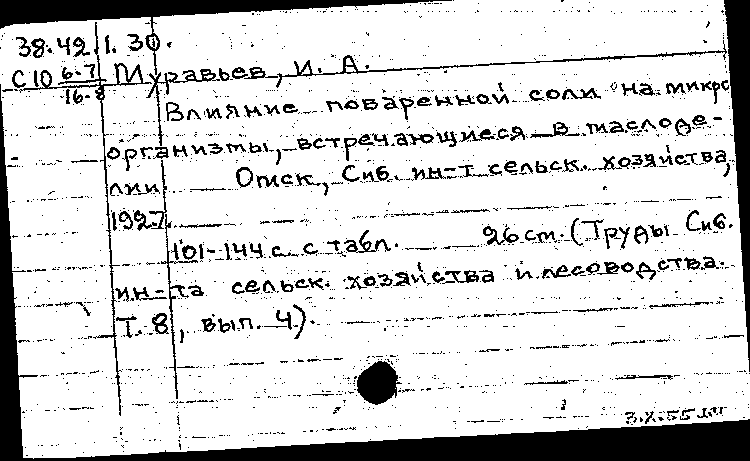 38.42.1.30.
С10 6-7/16-8 Муравьев, И. А.
Влияние поваренной соли на микро
организмы, встречающиеся в маслоде-
лии Омск, Сиб. ин-т сельск. хозяйства,
1927.
101-144 с. с табл. 26 см. (Труды Сиб.
ин-та сельск. хозяйства и лесоводства.
Т. 8, вып. 4).